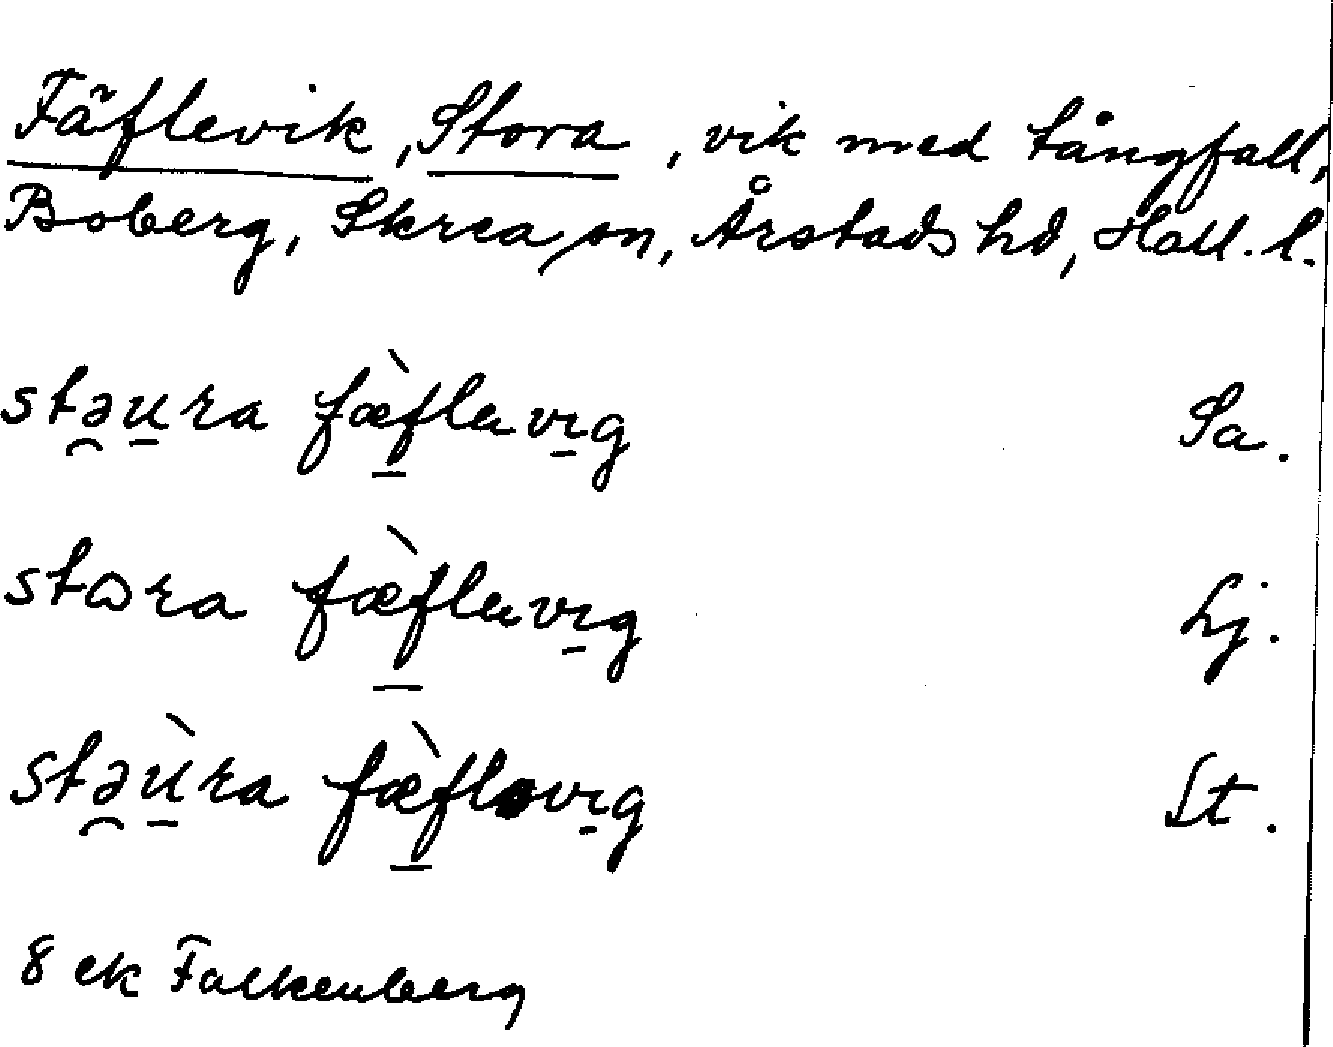 Fäflevik, Stora, vik med tångfall,
Boberg, Skrea sn, Årstads hd, Hall. l.
stə̯u̱ra fæ̀f̱lavı̱g Sa.
stɷra fæ̀f̱lavı̱g Lj.
stə̯ù̱ra fæ̀f̱ləvı̱g St.
8 ek Falkenberg